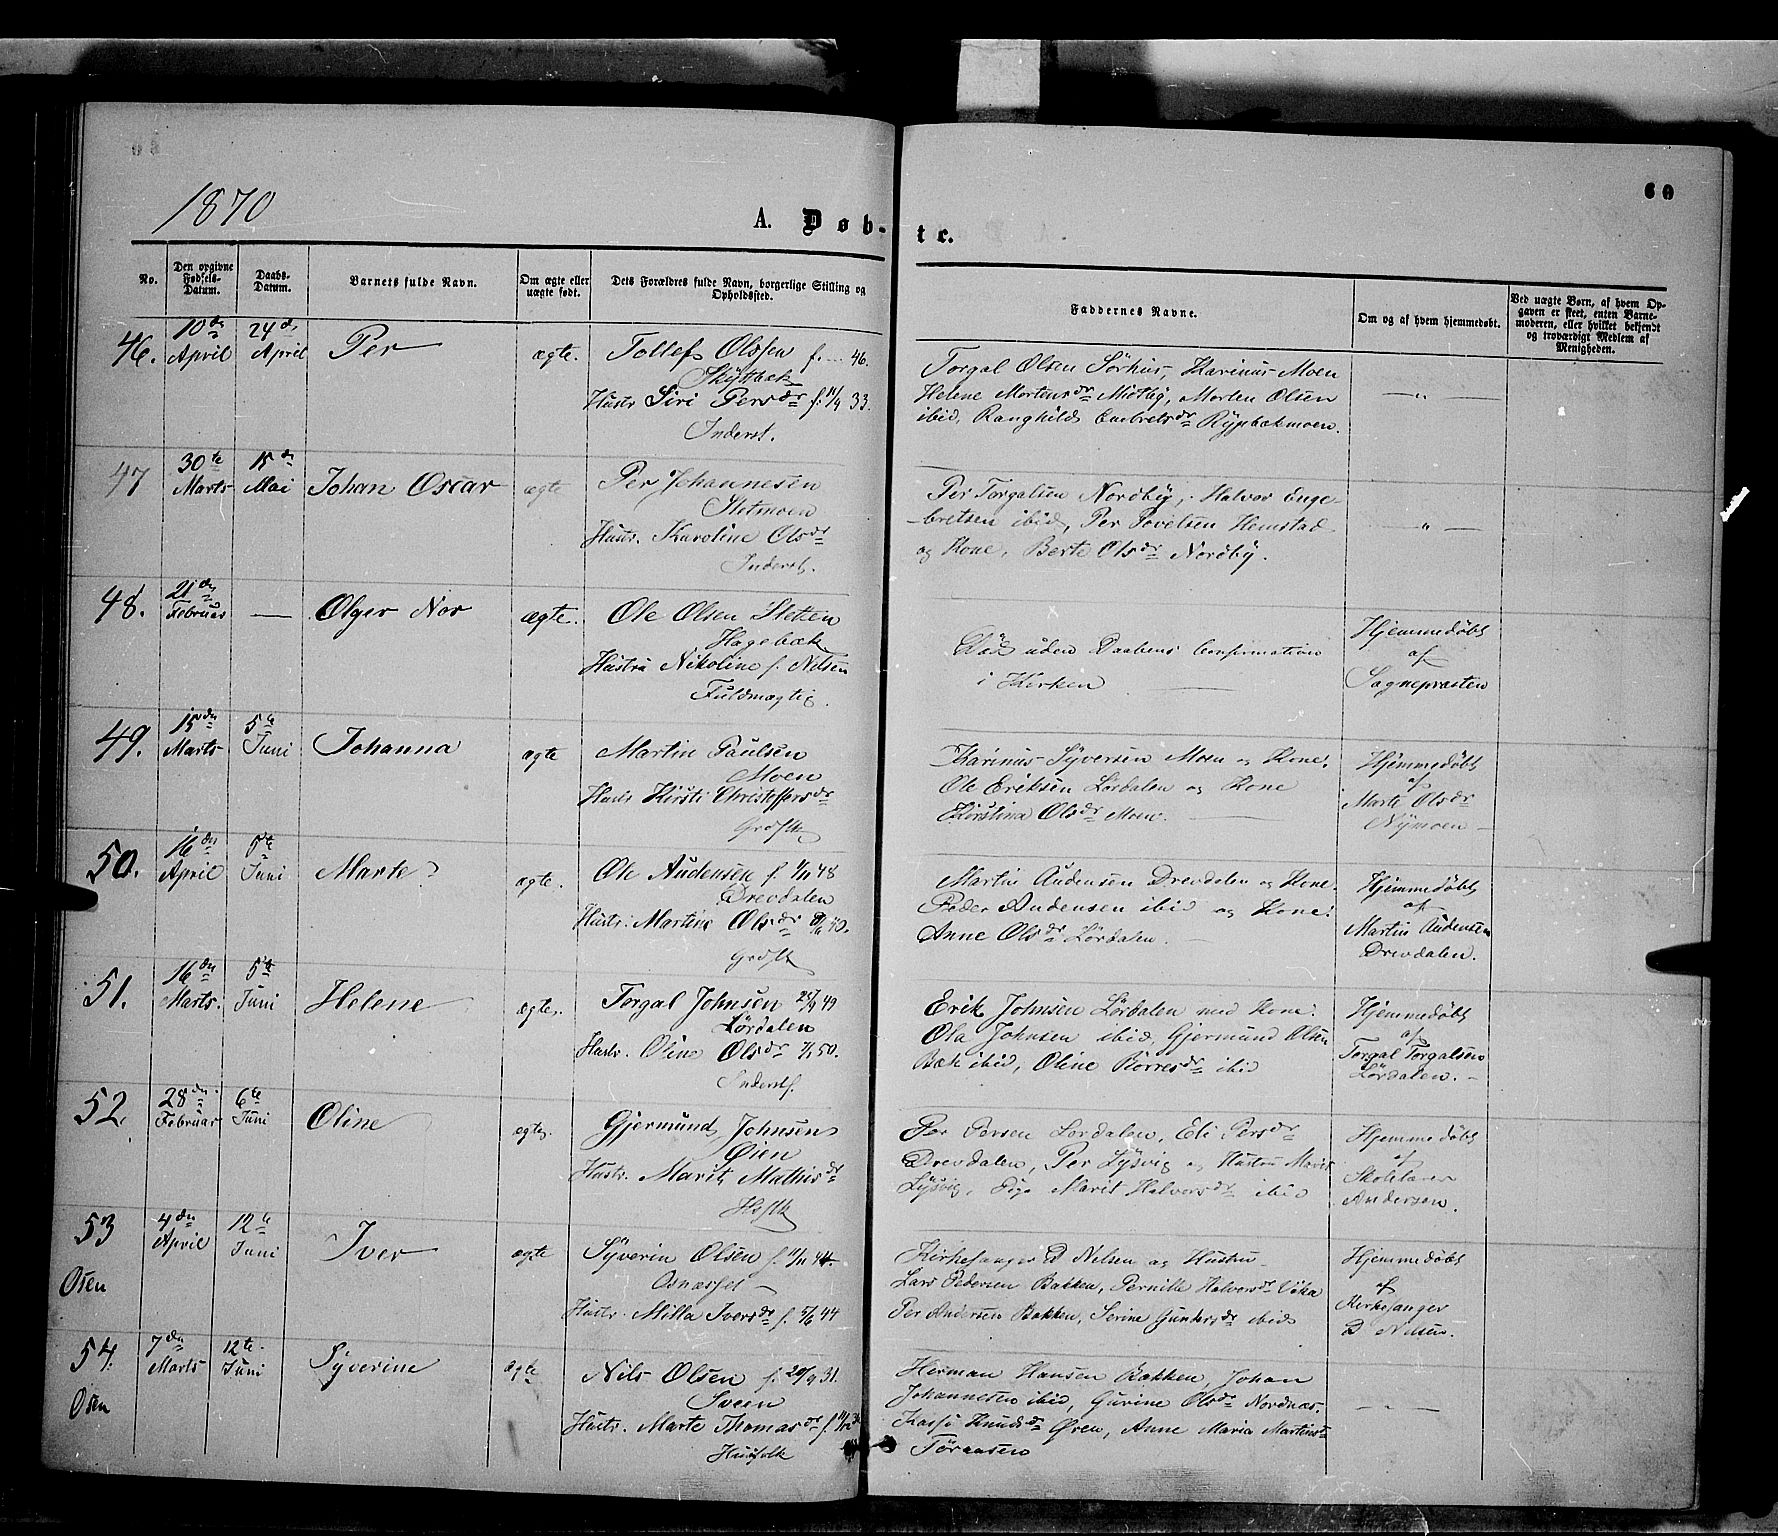 1870
60
A. Døb-
te.
No.
Den opgivne Fødsels-Datum.
Daabs-Datum.
Barnets fulde Navn.
Om ægte eller uægte født.
Dets Forældres fulde Navn, borgerlige Stilling og Opholdssted.
Faddernes Navne.
Om og af hvem hjemmedøbt.
Ved uægte Børn, af hvem Opgaven er skeet, enten Barnemoderen, eller hvilket bekjendt og troværdigt Medlem af Menigheden.
46. 10de April 24d. April Per ægte.
Tollef Olssen f. --- 46.
Skÿtbæk
Hustr Siri Persdr f. 11/9 33.
Inderst.
Torgal Olsen Sörhus, Karinus Moen
Helene Mortensdr Midtbÿ, Morten Olsen
ibid, Ranghild Embretsdr Rÿpbækmoen.
— " —
47 30te Marts 15de Mai Johan Oscar ægte
Per Johannesen
Stetmoen
Hustr. Karoline Olsdr
Inderst.
Per Torgalsen Nordbÿ, Halvor Enge-
-bretsen ibid, Per Povelsen Hemstad
og Kone, Berte Olsdr Nordbÿ.
— " —
48. 21de Februar — Olger Nor ægte.
Ole Olsen Stetten
Hagebæk
Hustru Nikoline f. Nilsen
Fuldmægtig.
Død uden Daabens Confirmation
i Kirken
Hjemmedøbt
af
Sognepræsten
49. 15de Marts 5te Juni Johanna ægte
Martin Paulsen
Moen
Hustr Kirsti Christoffersdr
Grdflk
Karinus Sÿversen Moen og Kone.
Ole Eriksen Lördalen og Kone
Kirstina Olsdr Moen.
Hjemmedøbt
af
Marte Olsdr
Nÿmoen
50. 16de April 5te Juni Marte ægte.
Ole Audensen f. 1/11 48
Drevdalen
Hustr. Martine Olsdr 40.
Grdflk
Martin Audensen Drevdalen og Kone.
Peder Audensen ibid og Kone.
Anne Olsdr Lördalen.
Hjemmedøbt
af
Martin Audensen
Drevdalen.
51. 16de Marts. 5te Juni Helene ægte.
Torgal Johnsen 49
Lördalen
Hustr. Oline Olsdr 50.
Inderst.
Erik Johnsen Lördalen med Kone.
Ola Johnsen ibid, Gjermund Olsen
Bæk ibid, Oline Börresdr ibid
Hjemmedøbt
af
Torgal Torgalsen
Lördalen.
52. 28de Februar 6te Juni Oline ægte.
Gjermund Johnsen
Øien
Hustr. Marit Mathisdr
Hsflk
Per Persen Lordalen, Eli Persdr
Drevdalen, Per Lÿsvig og Hustru Marit
Lÿsvig, Pige Marit Halvorsdr ibid
Hjemmedøbt
af
Skolelærer
Andersen.
53 4de April 12te Juni Iver ægte
Osen
Sÿverin Olsen f. 11/11 44.
Osnæsset
Hustr. Milla Iversdr f. 5/6 44
Kirkesanger D Nilsen og Hustru
Lars Pedersen Bakken, Pernille Halvorsdr Vika
Per Andersen Bakken, Serine Gundersdr ibid
Hjemmedøbt
af
Kirkesanger
D Nilsen.
54. 7de Marts 12te. Juni Sÿverine ægte
Osen
Nils Olsen f. 20/9 31.
Sveen
Hustr. Marte Thomasdr f. 11/12
Husfolk
Herman Hansen Bakken, Johan
Johannesen ibid, Gurine Olsdr Nordnæs.
Kassi Knudsdr Ören, Anne Maria Martinsdr
Töraasen
— " —